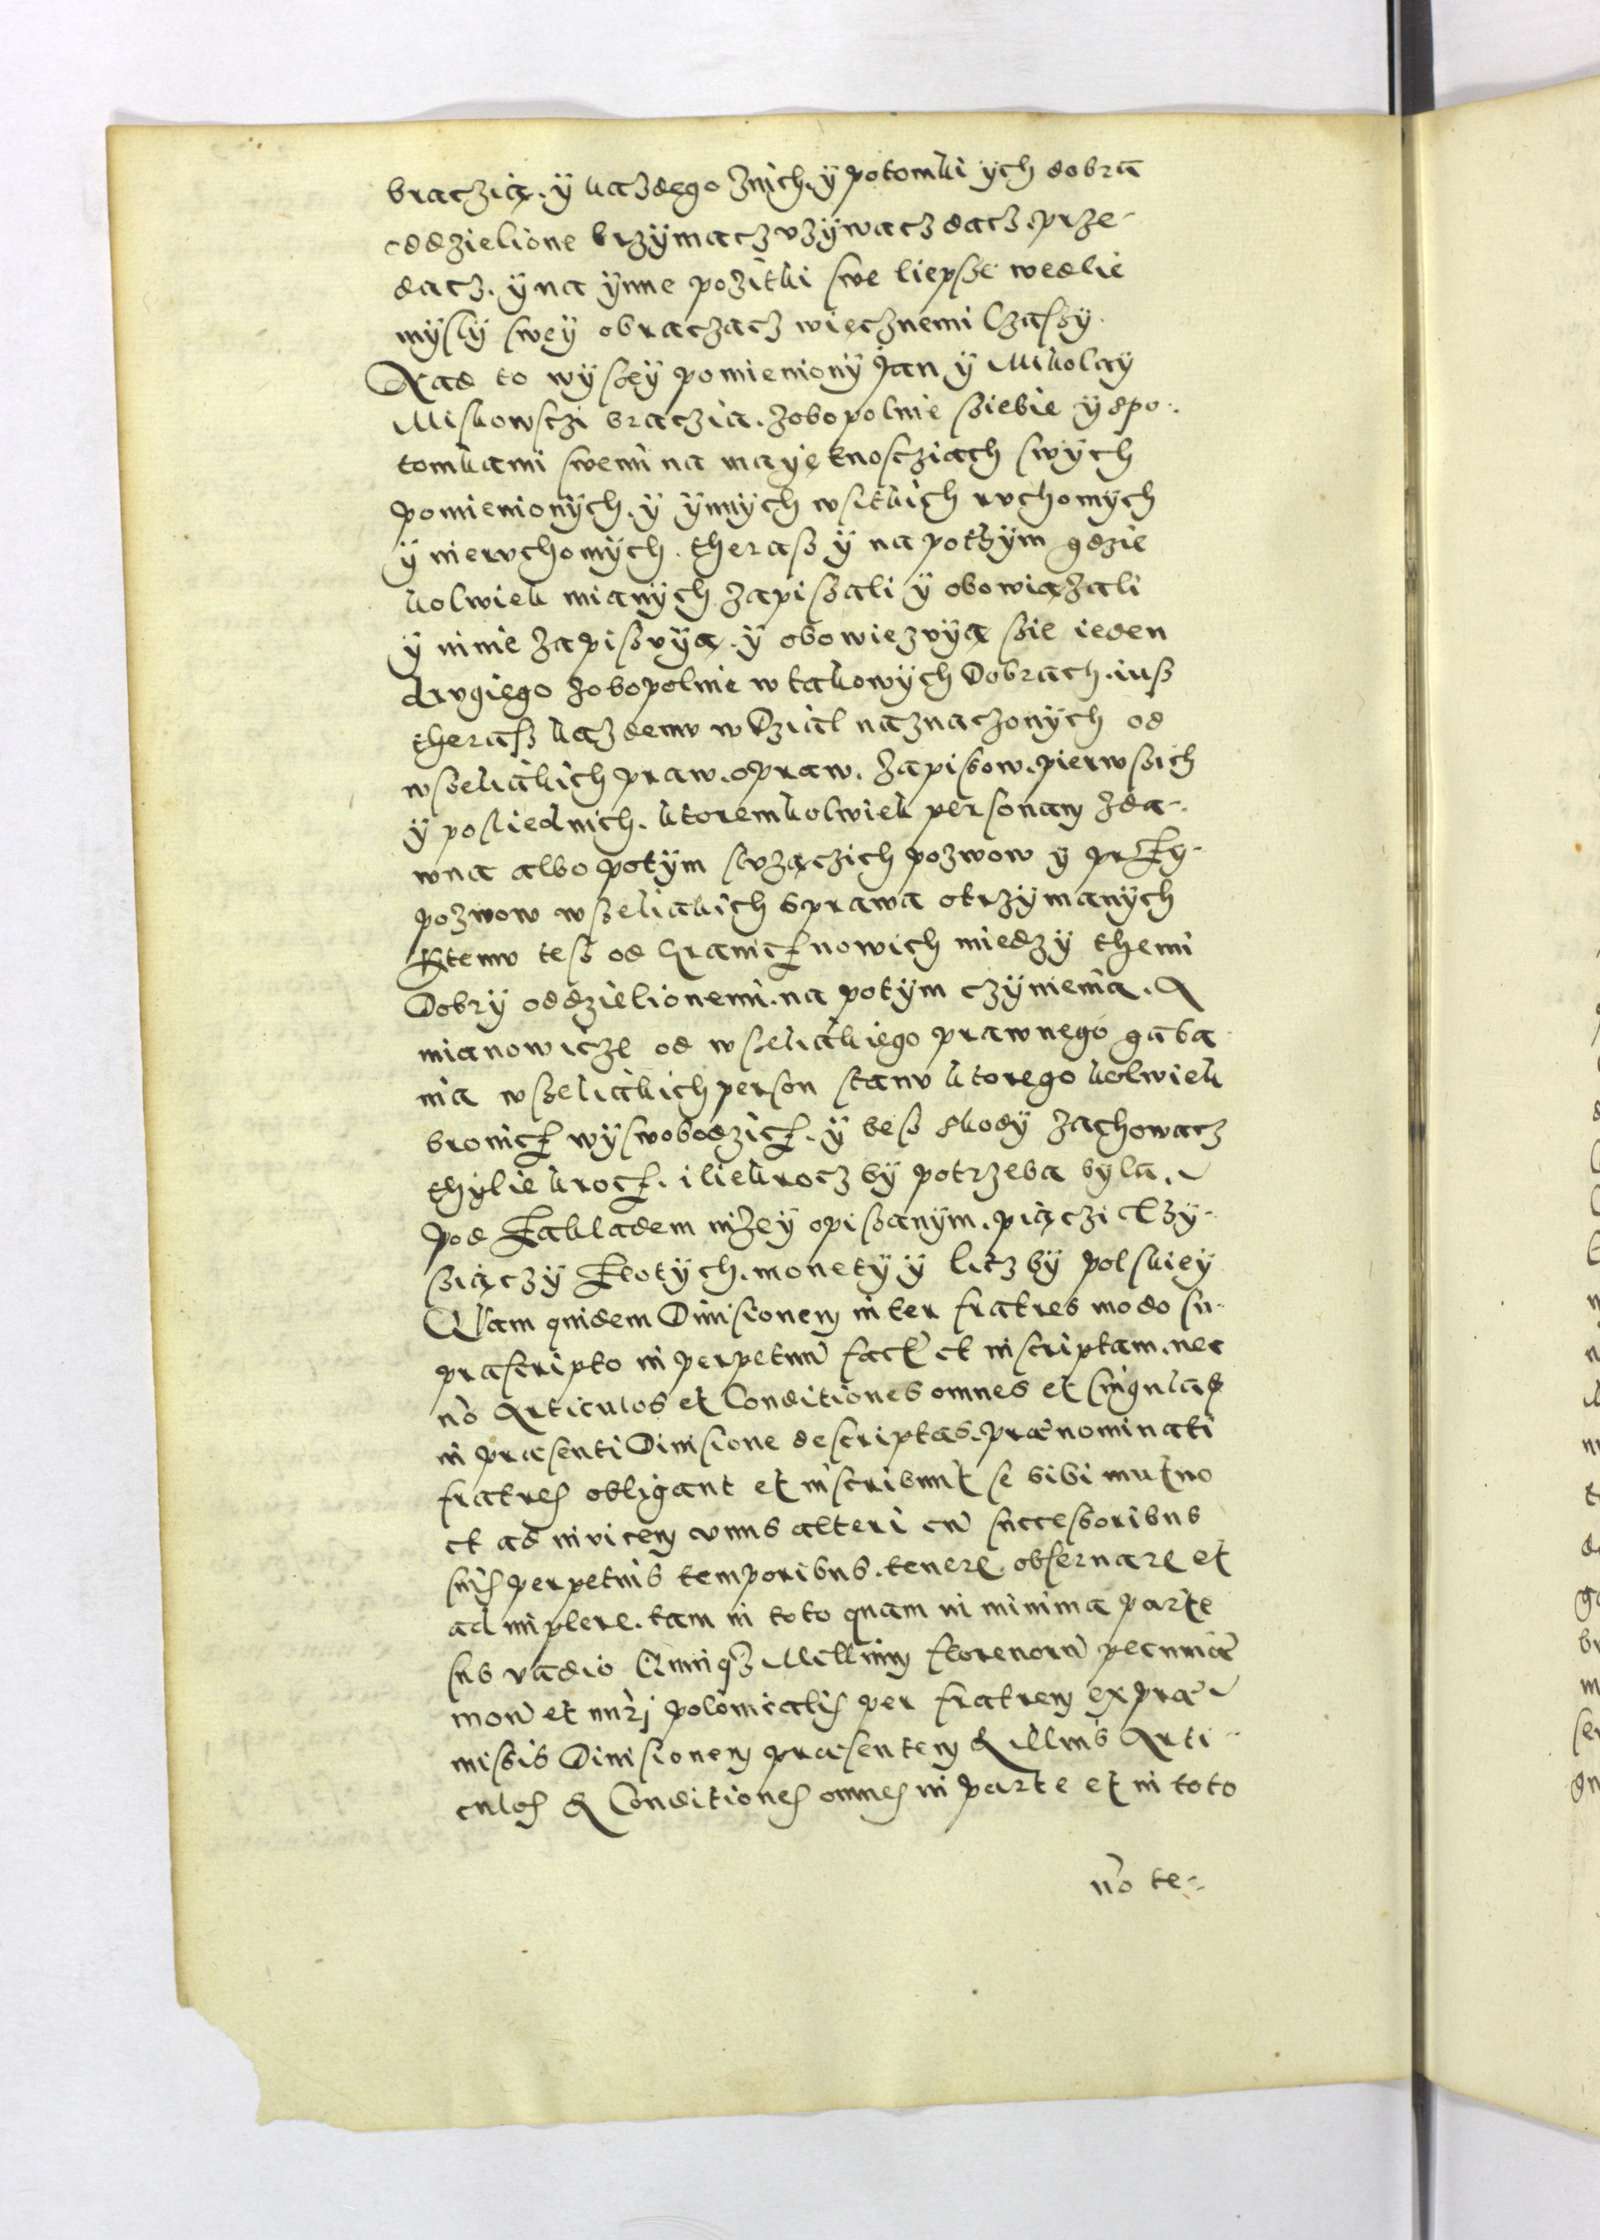 braczią. ÿ kazdego znich. ÿ potomki ÿch dobra
oddzielione trzÿmacz vzÿwacz dacz. prze-
dacz. ÿ na ÿnne pozitki swe liepsze wedlie
mÿsly sweÿ obraczacz wiecznemi Czassÿ.
Nad to wÿsseÿ pomienionÿ Jan ÿ Mikolaÿ
Miskowsczi braczia. zobopolnie ssiebie ÿ spo-
tomkami swemi na maÿętnoscziach swÿch
pomienionÿch. ÿ ÿnnÿch wsitkich ruchomÿch
ÿ nieruchomÿch. therasz ÿ na potÿm gdzie
kolwiek mianÿch zapissali ÿ obowiązali
ÿ ninie zapissuÿą. ÿ obowiezuÿą ssie ieden
drugiego zobopolnie w takowÿch Dobrach. iusz
therasz kazdemu w Dzial naznaczonÿch od
wsseliakich praw. opraw. zapissow. pierwssich
ÿ posliednich. ktoremkolwiek personam zda-
wna albo potÿm sluzączich pozwow ÿ przÿ-
pozwow wsseliakich sprawa otrzÿmanÿch
Ktemu tesz od Granicz nowich miedzÿ themi
Dobrÿ oddzielionemi. na potÿm czÿnienia. A
mianowicze od wsseliakiego prawnego gaba
nia wsseliakich person stanu ktorego kolwiek
bronicz wÿswobodzicz. ÿ besz skodÿ zachowacz
thÿlie krocz. iliekrocz bÿ potrzeba bÿla.
Pod Zakladem nizeÿ opissanÿm. piączi Tÿ-
ssiączÿ Zlotÿch. monetÿ ÿ liczbÿ polskieÿ
Quam quidem Diuisionem inter fratres modo su-
prascripto in perpetuũ factã et inscriptam. nec
nõ Articulos et Conditiones omnes et singulas
in præsenti Diuisione descriptas. prænominati
fratres obligant et inscribunt se sibi mutuo
et ad inuicem vnus alteri cũ successoribus
suis perpetuis temporibus. tenere obseruare et
adimplere. tam in toto quam in minima parte
sub vadio Quinq3 Millium florenorũ pecuniæ
monẽ et nũri polonicalis per fratrem ex præ-
missis Diuisionem præsentem & illius Arti-
culos & Conditiones omnes in parte et in toto
nõ te-